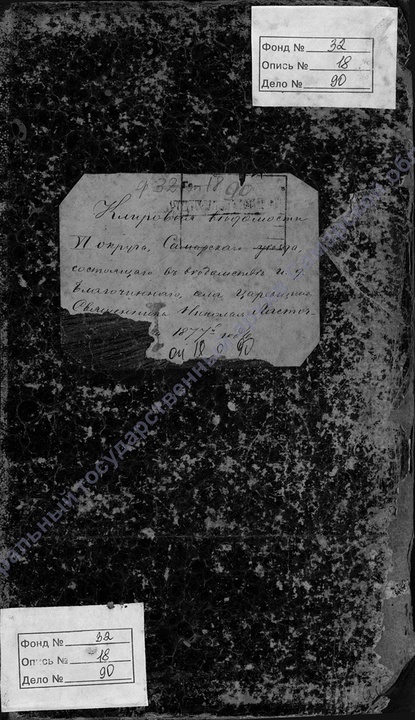 Фонд № 32
Опись № 18
Дело № 90
ф 32 оп 18 90
Клировыя вѣдомости
VI округа, Самарскаго уѣзда
состоящаго въ вѣдомствѣ и. д.
Благочиннаго, села Царевщины
Священника Николая
1877 года
оп 18 д 90
Фонд № 32
Опись № 18
Дело № 90
государственный